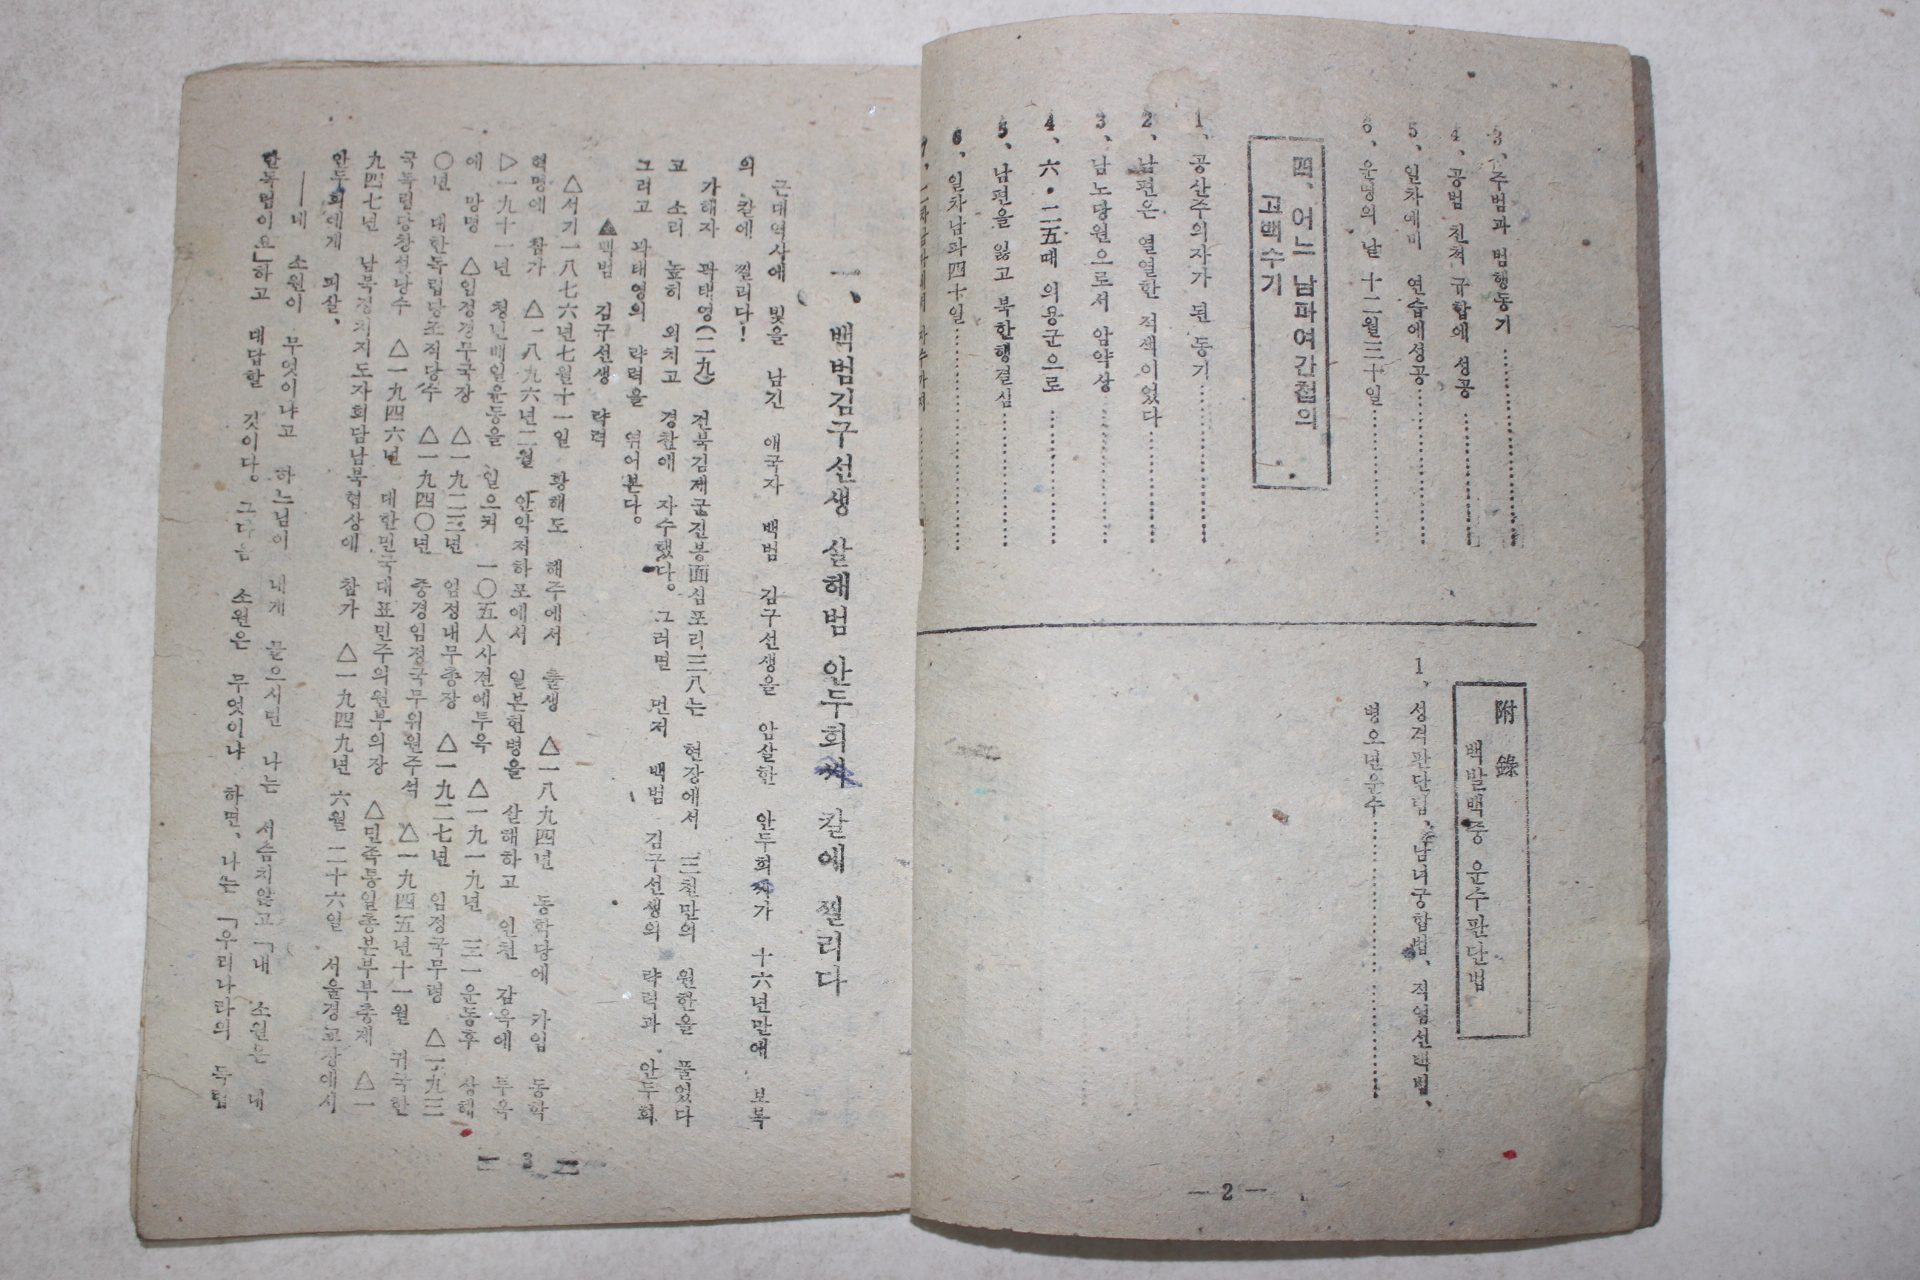 3、주범과 범행동기
4、공범 친척 규합에 성공
5、일차예비 연습에성공
6、운명의 날 十二월三十일
四、어느 남파여간첩의
고백수기
1、공산주의자가 된 동기
2、남편은 열열한 적색이었다
3、남노당원으로서 암약상
4、六•二五때 의용군으로
5、남편을 잃고 북한행결심
6、일차남파四十일
附 錄
백발백중 운수판단법
1、성격판단법、남녀궁합법、직업선택법、
병으년운수
— 2 —
一、백범김구선생 살해범 안두희 칼에 찔리다
근대역사에 빛을 남긴 애국자 백범 김구선생을 암살한 안두희 가 十六년만에 보복
의 칼에 찔리다!
가해자 곽태영(二九) 전북김제군진봉面심포리三八는 현장에서 三천만의 원한을 풀었다
고 소리 높히 외치고 경찰에 자수했다。그러면 먼저 백범 김구선생의 략력과 안두희
그리고 곽태영의 략력을 엮어본다。
▲백범 김구선생 략력
△서기一八七六년七월十一일 황해도 해주에서 출생 △一八九四년 동학당에 가입 동학
혁명에 참가 △一八九六년二월 안악저하포에서 일본헌병을 살해하고 인천 감옥에 투옥
▷一九十一년 청년배일운동을 일으켜 一〇五人사건에투옥 △一九一九년 三一운동후 상해
에 망명 △임정경무국장 △一九二三년 임정내무총장 △一九二七년 임정국무령 △一九三
〇년 대한독립당조직당수 △一九四〇년 중경임정국무위원주석 △一九四五년十一월 귀국한
국독립당창설당수 △一九四六년 대한민국대표민주의원부의장 △민족통일총본부부총재 △一
九四七년 남북정치지도자회담남북협상에 참가 △一九四九년 六월 二十六일 서울경교장에서
안두희에게 피살、
——네 소원이 무엇이냐고 하느님이 내게 물으시면 나는 서슴치않고「내 소원은 대
한독립이요」하고 대답할 것이다。그다음 소원은 무엇이냐 하면、나는「우리나라의 독립
3